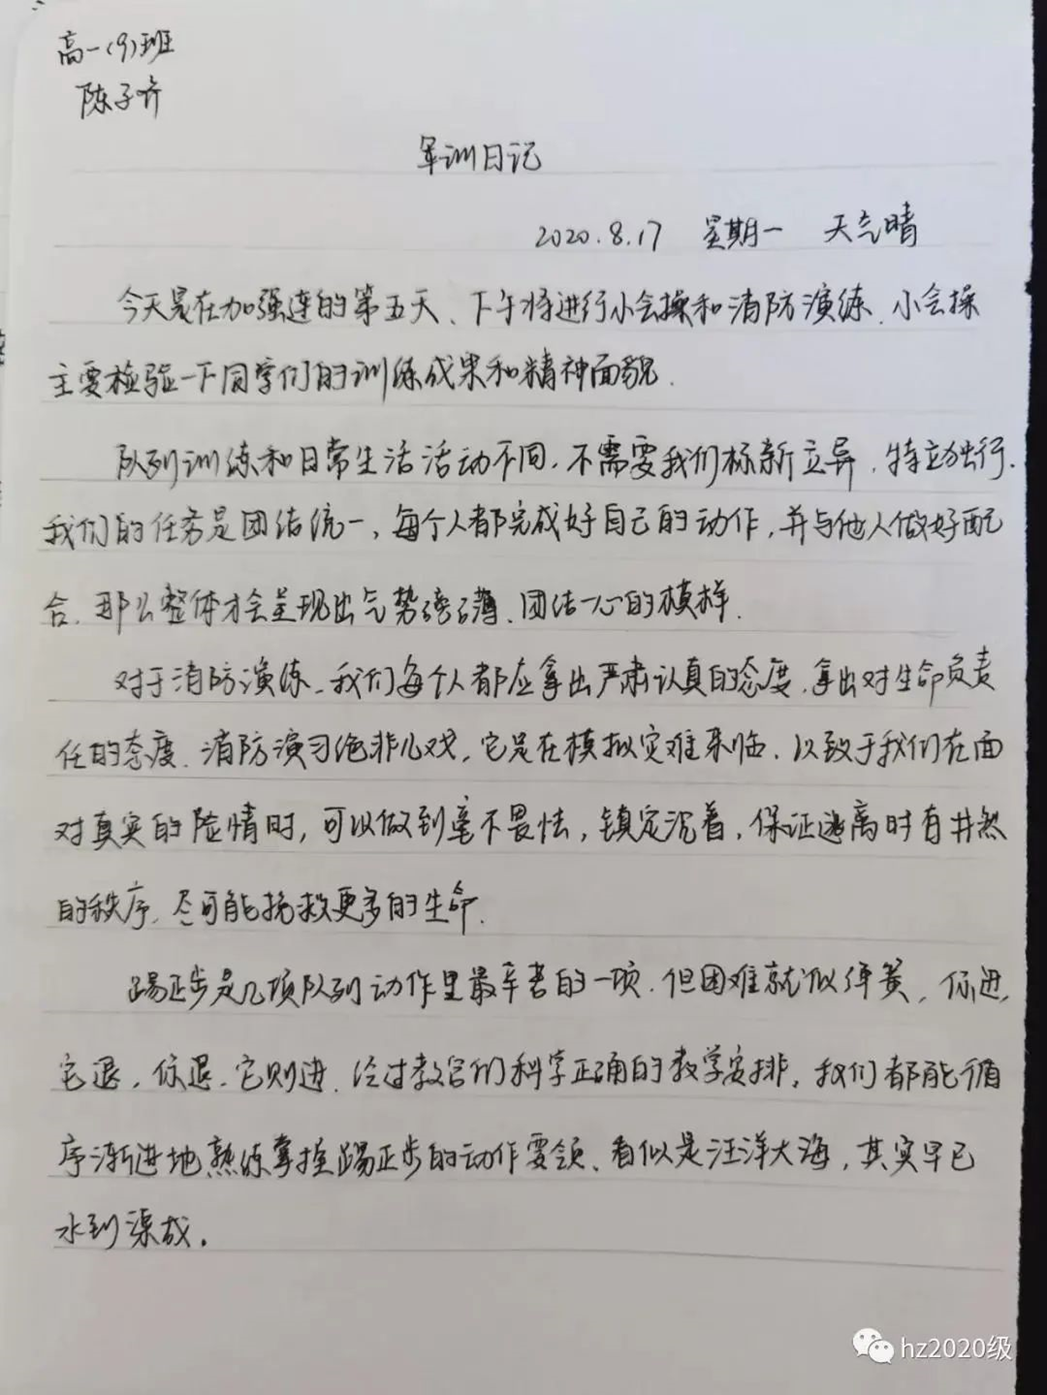 高一(9)班
陈子齐
军训日记
2020.8.17 星期一 天气晴
今天是在加强连的第五天、下午将进行小会操和消防演练.小会操
主要检验一下同学们的训练成果和精神面貌.
队列训练和日常生活活动不同,不需要我们标新立异.特立独行.
我们的任务是团结统一,每个人都完成好自己的动作,并与他人做好配
合.那么整体才会呈现出气势磅礴、团结一心的模样.
对于消防演练、我们每个人都应拿出严肃认真的态度.拿出对生命负责
任的态度.消防演习绝非儿戏,它是在模拟灾难来临.以致于我们在面
对真实的险情时,可以做到毫不畏怯,镇定沉着,保证逃离时有井然
的秩序.尽可能挽救更多的生命.
踢正步是几项队列动作里最辛苦的一项.但困难就似弹簧,你进,
它退.你退.它则进.经过教官们科学正确的教学安排,我们都能循
序渐进地熟练掌握踢正步的动作要领、看似是汪洋大海,其实早已
水到渠成.
hz2020级